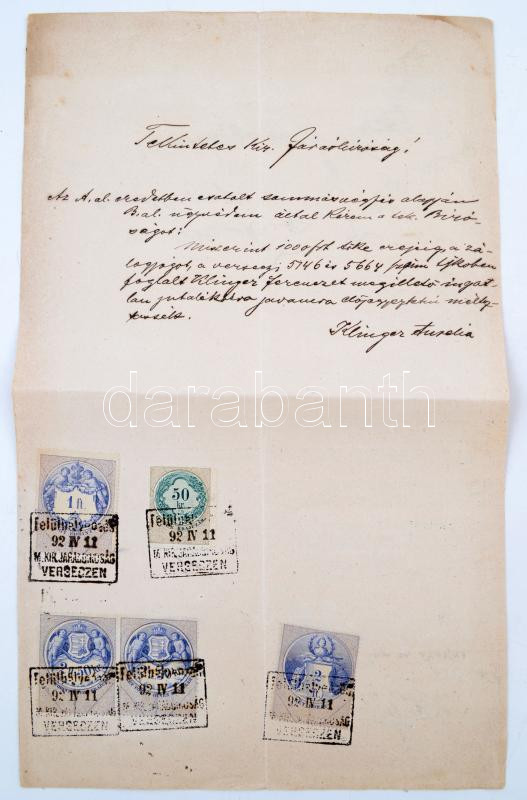 Tekintetes Kir. Járásbíróság!
Az A. al. eredetben csatolt alapján
B. al. ügyvédem által kérem a tek. Bíró-
ságot:
Miszerint 1000 frt tőke erejéig a zá-
logjogot, a verseczi 5146 és 5664 számu tjkvben
foglalt Klinger Ferenczet megillető ingat-
lan jutalékára javamra
Klinger Aurelia
darabanth
1 fl.
50
kr.
Felülbélyegezve
92 IV 11
M. KIR. JÁRÁSBIRÓSÁG
VERSECZEN
Felülbélyegezve
92 IV 11
M. KIR. JÁRÁSBIRÓSÁG
VERSECZEN
2
Felülbélyegezve
92 IV 11
M. KIR. JÁRÁSBIRÓSÁG
VERSECZEN
Felülbélyegezve
92 IV 11
M. KIR. JÁRÁSBIRÓSÁG
VERSECZEN
2
Felülbélyegezve
92 IV 11
M. KIR. JÁRÁSBIRÓSÁG
VERSECZEN